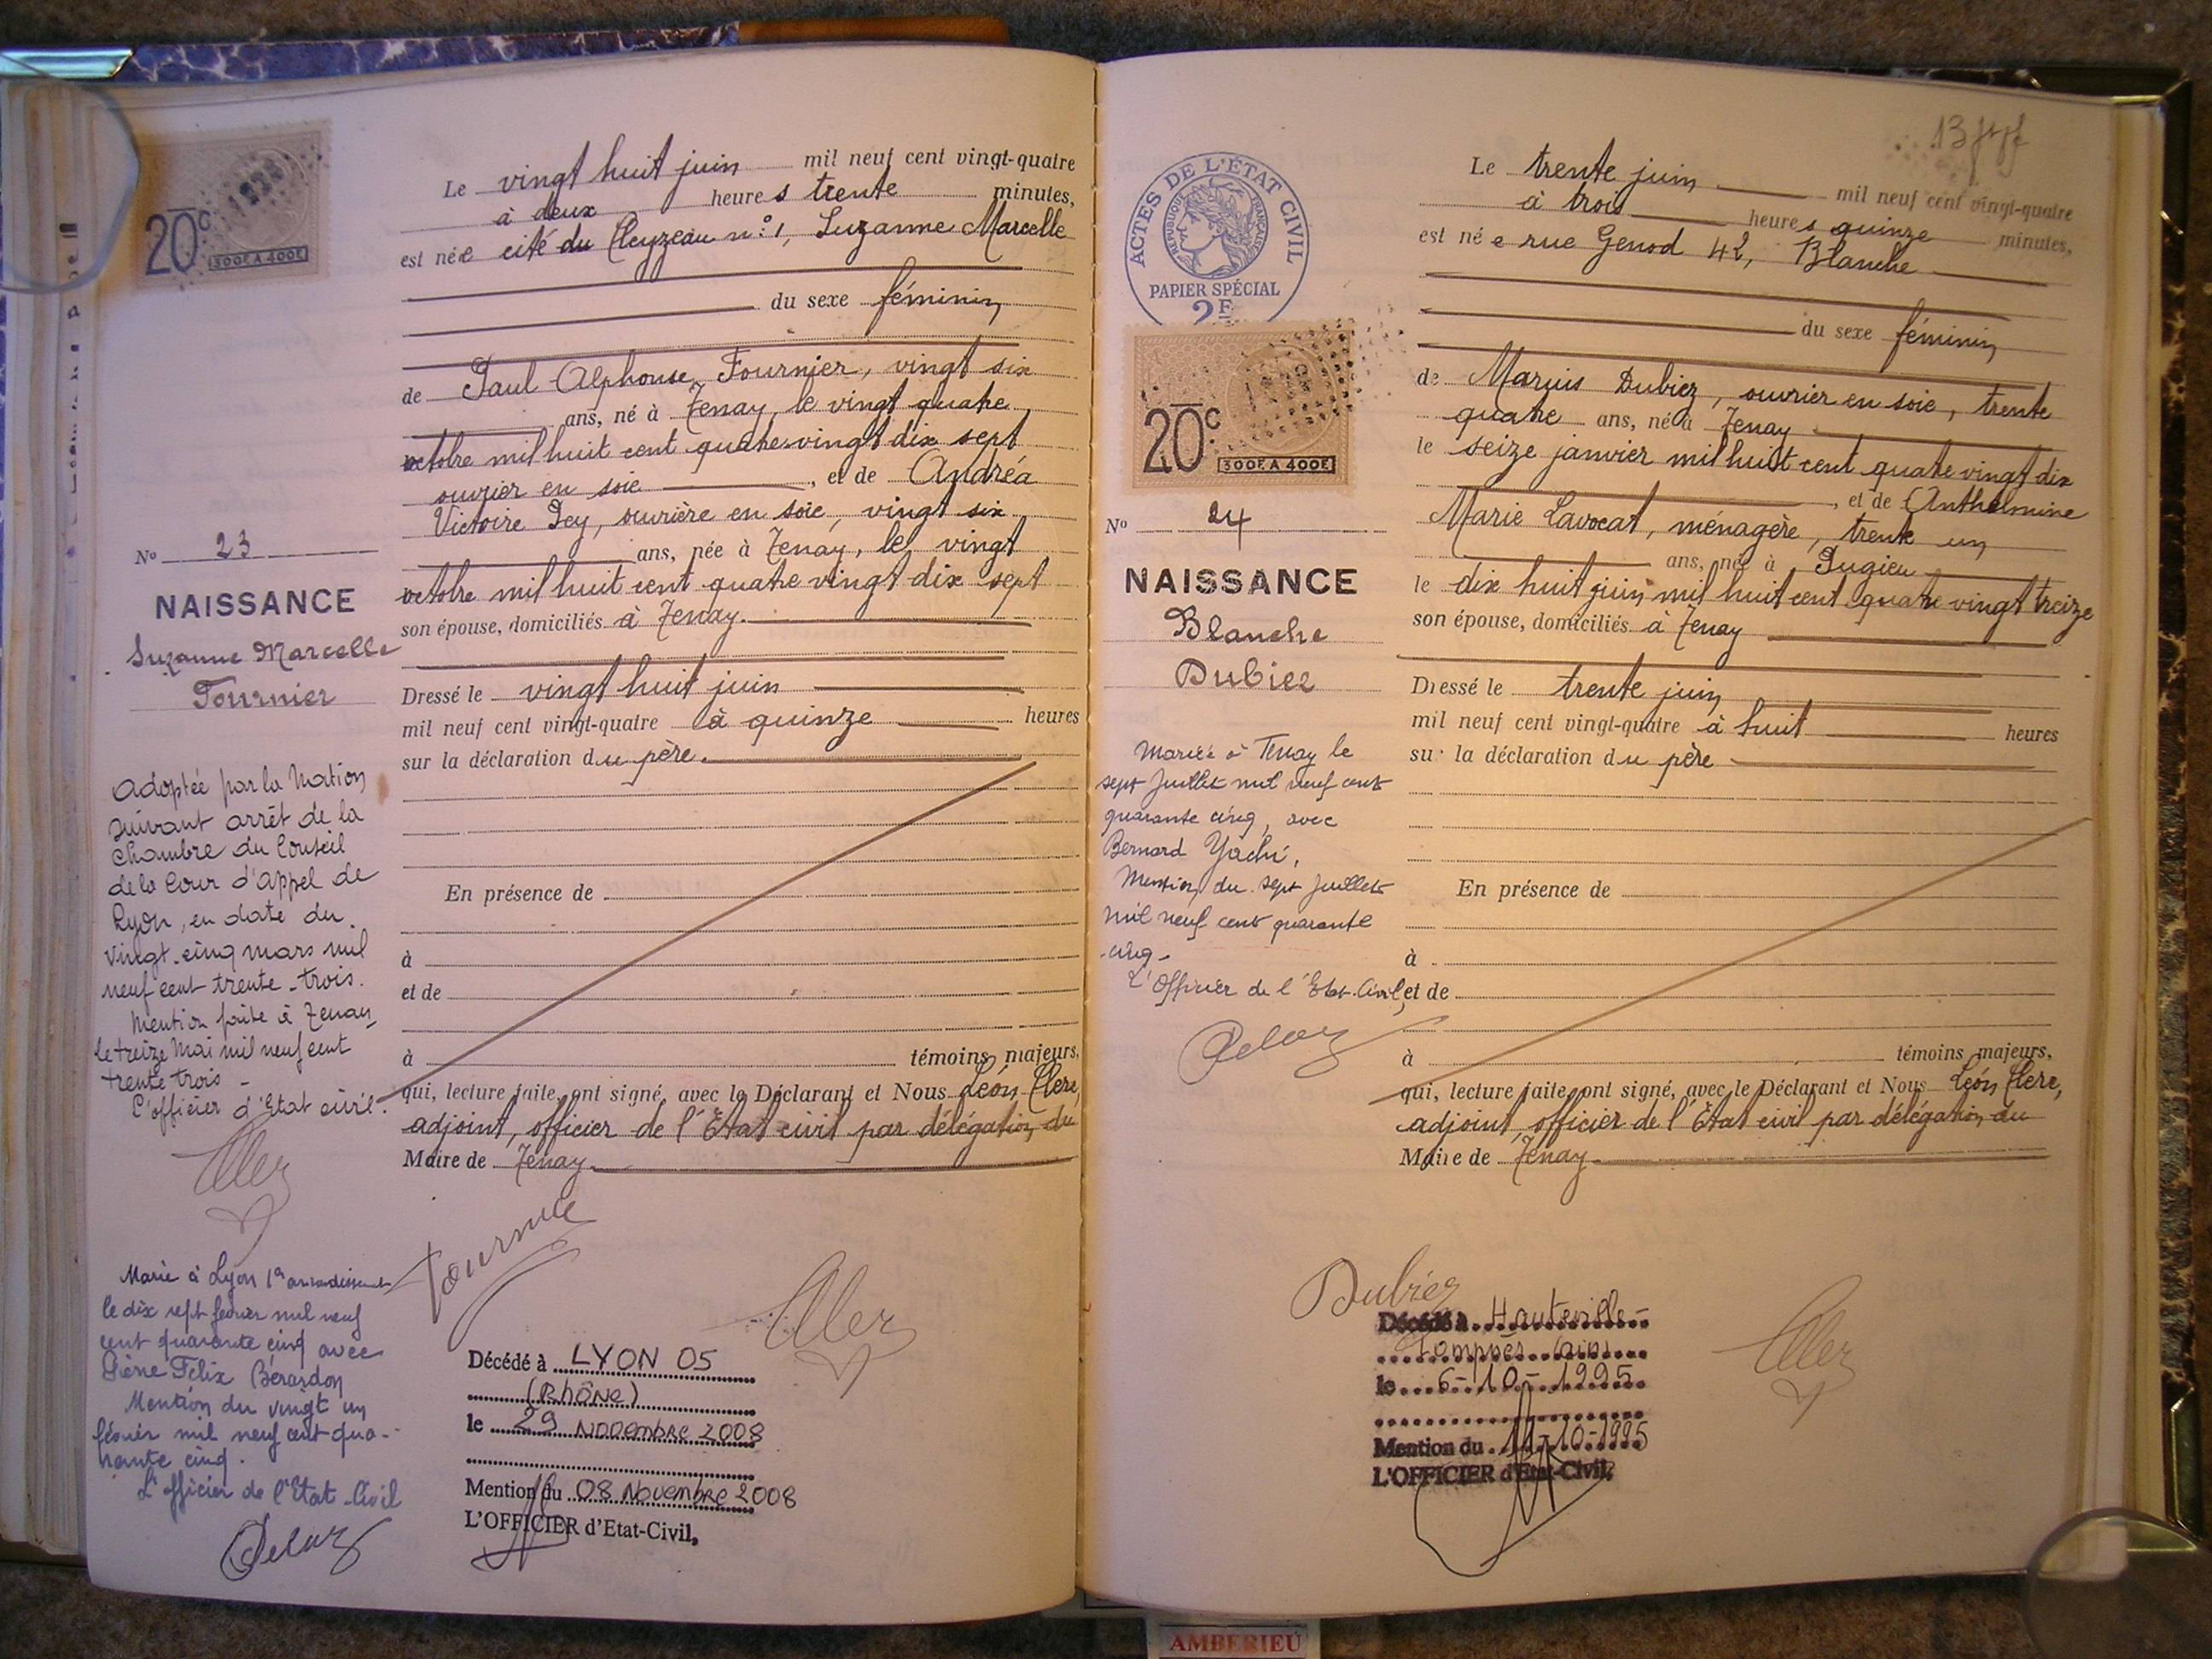 20c
300F A 400F
Le vingt huit juin mil neuf cent vingt-quatre
à deux heures trente minutes,
est née cité du Cleyzeau n:°1, Suzanne Marcelle
du sexe féminin
de Paul Alphonse Fournier, vingt six
ans, né à Tenay, le vingt quatre
octobre mil huit cent quatre vingt dix sept
ouvrier en soie, et de Andréa
Victoire Pey, ouvrière en soie, vingt six
ans, née à Tenay, le vingt
octobre mil huit cent quatre vingt dix sept
son épouse, domiciliés à Tenay.
Dressé le vingt huit juin
mil neuf cent vingt-quatre à quinze heures
sur la déclaration du père.
En présence de
à
et de
à témoins majeurs,
qui, lecture faite, ont signé, avec le Déclarant et Nous Léon Clerc,
adjoint, officier de l'État civil par délégation du
Maire de Tenay
Nº 23
NAISSANCE
Suzanne Marcelle
Fournier
Adoptée par la Nation
suivant arrêt de la
Chambre du Conseil
de la Cour d'Appel de
Lyon, en date du
vingt-cinq mars mil
neuf cent trente-trois.
Mention faite à Tenay,
le treize Mai mil neuf cent
trente trois -
L'officier d'Etat civil.
Marié à Lyon 1er arrondissement
le dix sept février mil neuf
cent quarante cinq avec
Pierre Félix Bérardon
Mention du vingt un
février mil neuf cent qua-
rante cinq.
L'officier de l'Etat-Civil
Fournier
Décédé à LYON 05
(Rhône)
le 29 NOVEMBRE 2008
Mention du 08 NOVEMBRE 2008
L'OFFICIER d'Etat-Civil,
ACTES DE L'ÉTAT CIVIL
RÉPUBLIQUE FRANÇAISE
PAPIER SPÉCIAL
2F
20c
300F A 400F
13
Le trente juin mil neuf cent vingt-quatre
à trois heures quinze minutes,
est née rue Genod 42, Blanche
du sexe féminin
de Marius Dubiez, ouvrier en soie, trente
quatre ans, né à Tenay
le seize janvier mil huit cent quatre vingt dix
, et de Anthelmine
Marie Lavocat, ménagère, trente un
ans, née à Pugieu
le dix huit juin mil huit cent quatre vingt treize
son épouse, domiciliés à Tenay
Dressé le trente juin
mil neuf cent vingt-quatre à huit heures
sur la déclaration du père
En présence de
à
et de
à témoins majeurs,
qui, lecture faite, ont signé, avec le Déclarant et Nous Léon Clerc,
adjoint, officier de l'État civil par délégation du
Maire de Tenay
Nº 24
NAISSANCE
Blanche
Dubiez
Mariée à Tenay le
sept Juillet mil neuf cent
quarante cinq, avec
Bernard
Mention du sept Juillet
mil neuf cent quarante
-cinq-
L'Officier de l'Etat-Civil,
Dubiez
Décédé à Hauteville-
Lompnes (Ain)
le 6-10-1995
Mention du 11-10-1995
L'OFFICIER d'Etat-Civil,
AMBERIEU